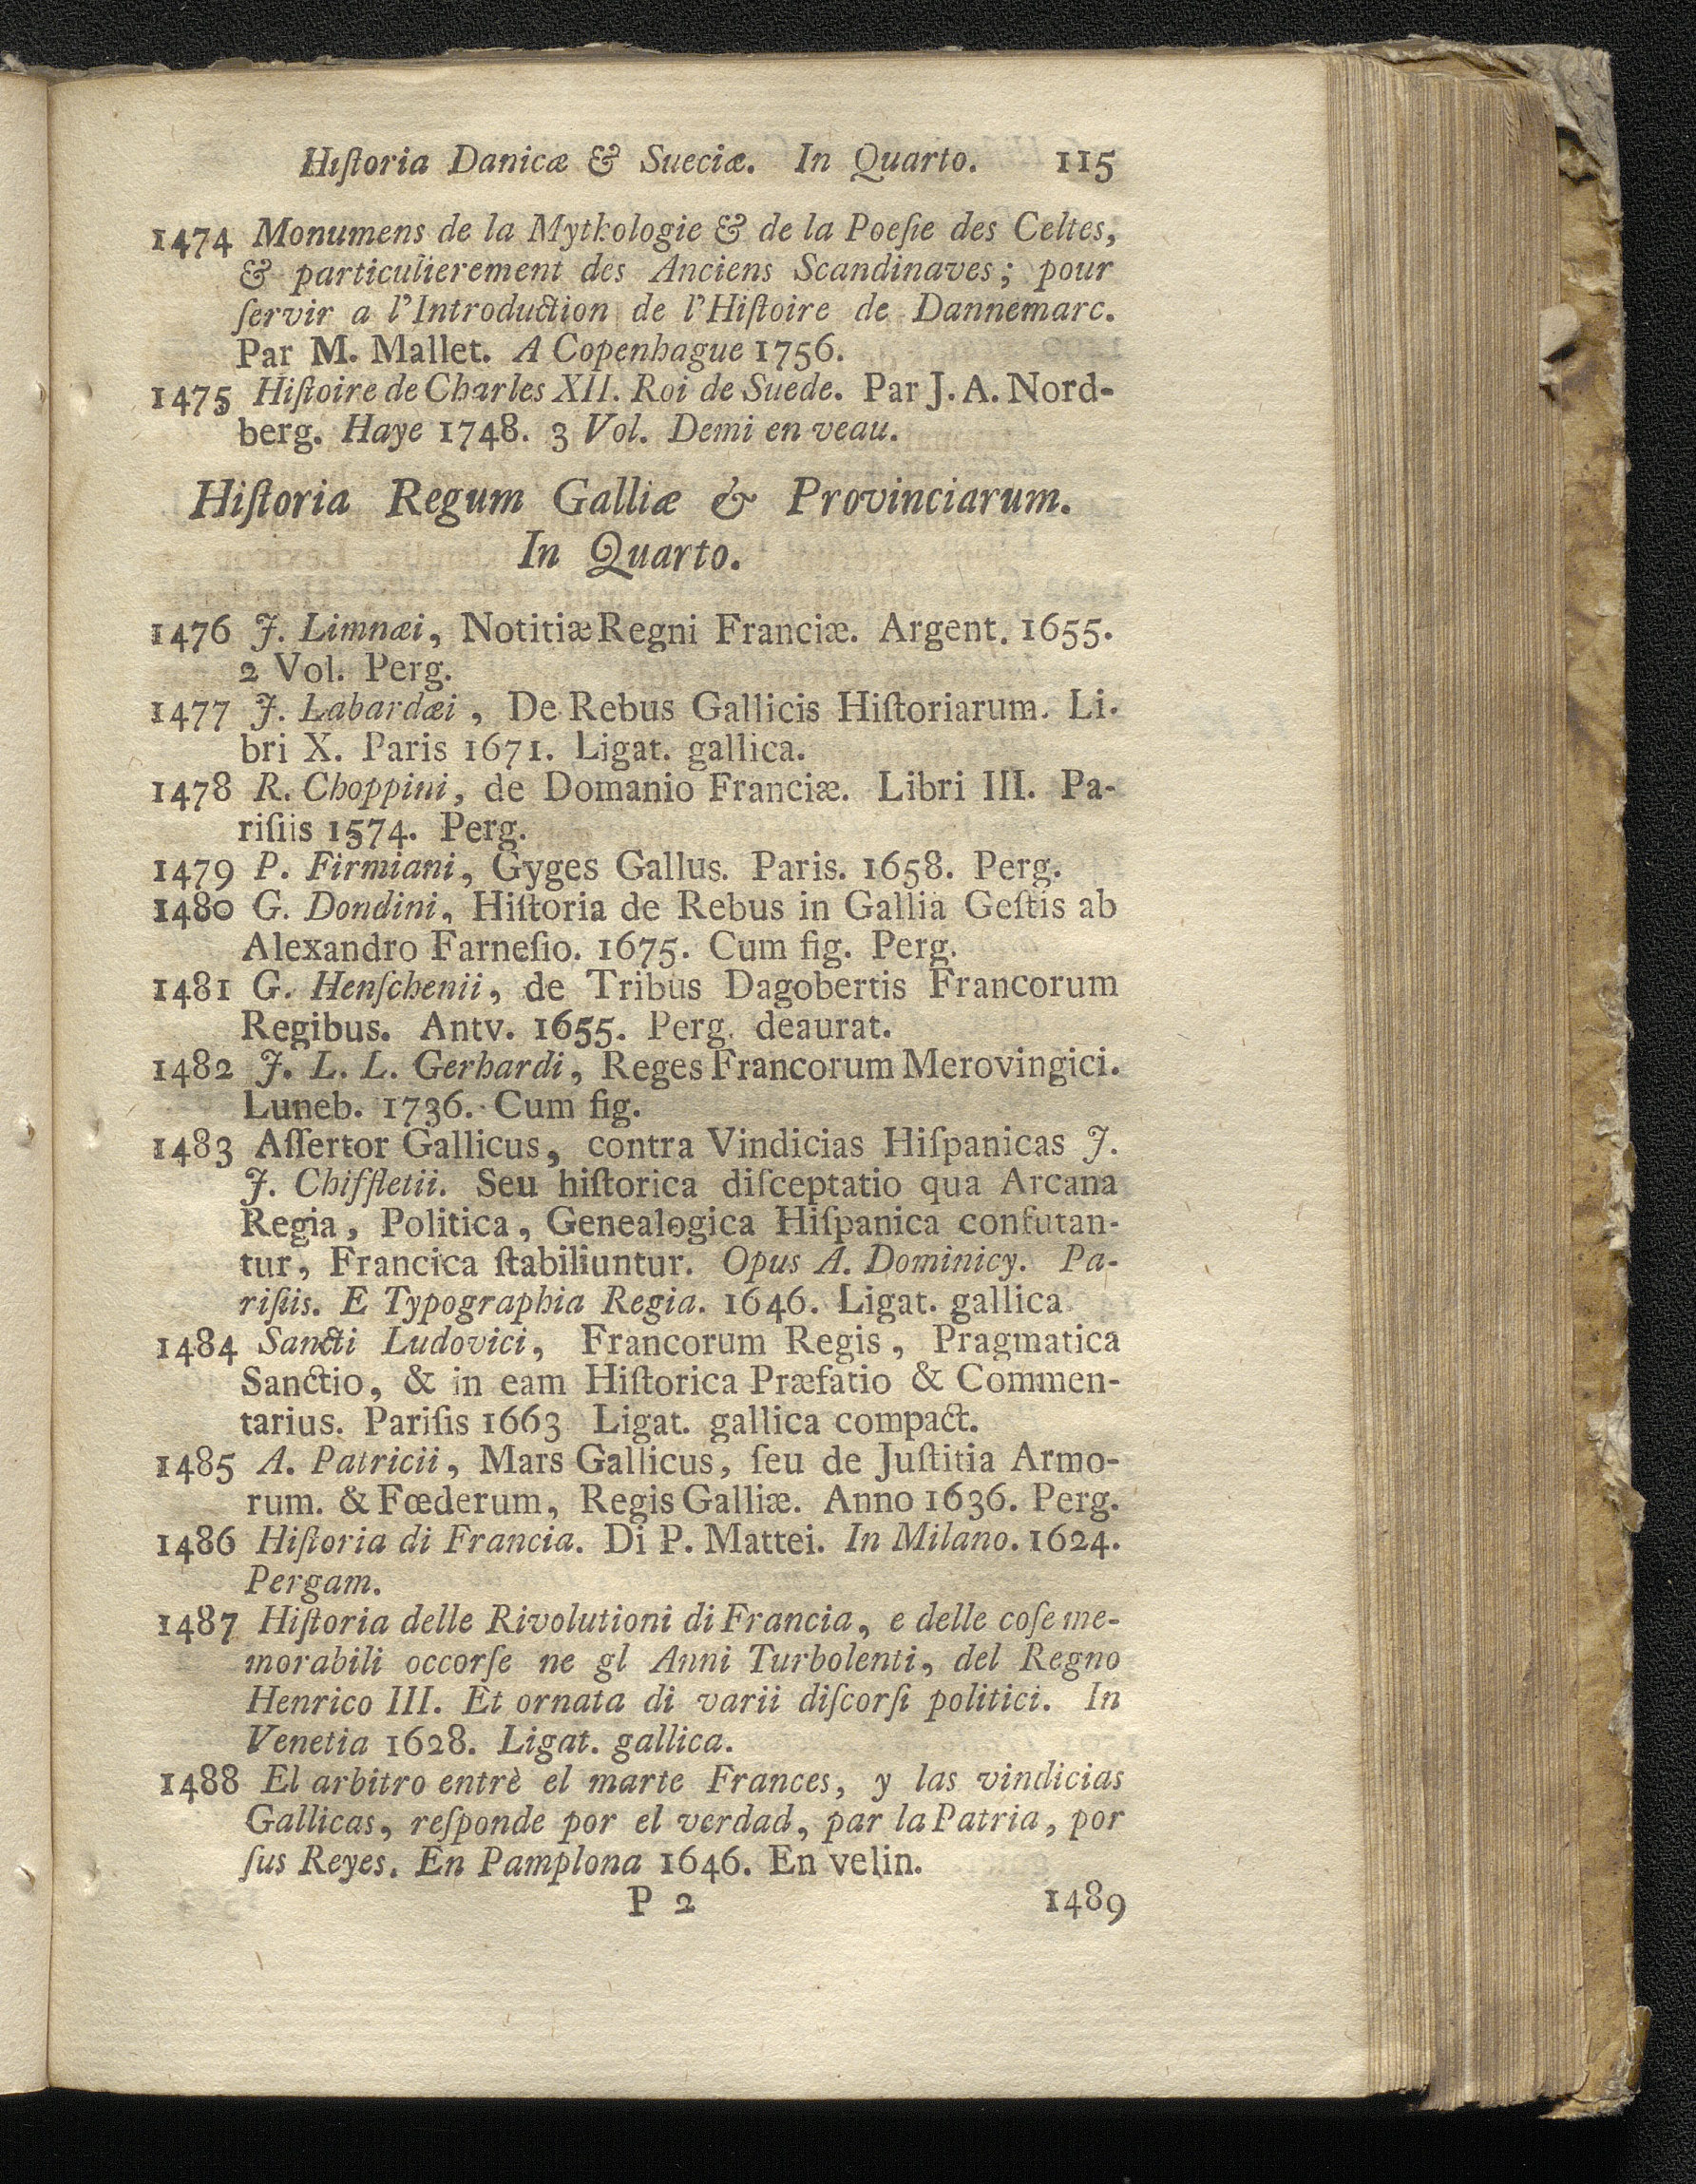 Hiſtoria Danicæ & Sueciæ. In Quarto. 115
1474 Monumens de la Mythologie & de la Poeſie des Celtes,
& particulierement des Anciens Scandinaves; pour
ſervir a l'Introduction de l'Hiſtoire de Dannemarc.
Par M. Mallet. A Copenhague 1756.
1475 Hiſtoire de Charles XII. Roi de Suede. Par J. A. Nord-
berg. Haye 1748. 3 Vol. Demi en veau.
Hiſtoria Regum Galliæ & Provinciarum.
In Quarto.
1476 J. Limnæi, Notitiæ Regni Franciæ. Argent. 1655.
2 Vol. Perg.
1477 J. Labardæi, De Rebus Gallicis Hiſtoriarum. Li-
bri X. Paris 1671. Ligat. gallica.
1478 R. Choppini, de Domanio Franciæ. Libri III. Pa-
riſiis 1574. Perg.
1479 P. Firmiani, Gyges Gallus. Paris. 1658. Perg.
1480 G. Dondini, Hiſtoria de Rebus in Gallia Geſtis ab
Alexandro Farneſio. 1675. Cum fig. Perg.
1481 G. Henſchenii, de Tribus Dagobertis Francorum
Regibus. Antv. 1655. Perg. deaurat.
1482 J. L. L. Gerhardi, Reges Francorum Merovingici.
Luneb. 1736. Cum fig.
1483 Aſſertor Gallicus, contra Vindicias Hiſpanicas J.
J. Chiffletii. Seu hiſtorica diſceptatio qua Arcana
Regia, Politica, Genealogica Hiſpanica confutan-
tur, Francica ſtabiliuntur. Opus A. Dominicy. Pa-
riſiis. E Typographia Regia. 1646. Ligat. gallica
1484 Sancti Ludovici, Francorum Regis, Pragmatica
Sanctio, & in eam Hiſtorica Præfatio & Commen-
tarius. Pariſis 1663 Ligat. gallica compact.
1485 A. Patricii, Mars Gallicus, ſeu de Juſtitia Armo-
rum. & Fœderum, Regis Galliæ. Anno 1636. Perg.
1486 Hiſtoria di Francia. Di P. Mattei. In Milano. 1624.
Pergam.
1487 Hiſtoria delle Rivolutioni di Francia, e delle coſe me-
morabili occorſe ne gl Anni Turbolenti, del Regno
Henrico III. Et ornata di varii diſcorſi politici. In
Venetia 1628. Ligat. gallica.
1488 El arbitro entrè el marte Frances, y las vindicias
Gallicas, reſponde por el verdad, par la Patria, por
ſus Reyes. En Pamplona 1646. En velin.
P 2 1489